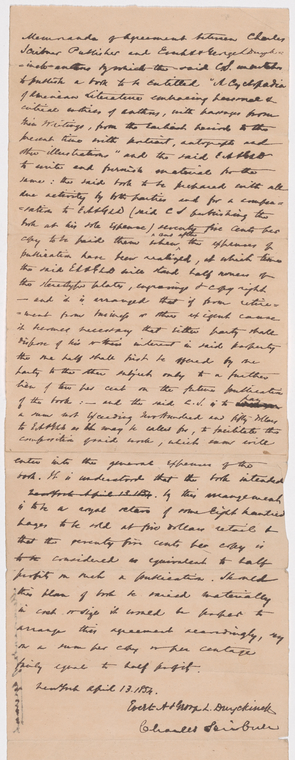 Memoranda of agreement between Charles
Scribner Publisher and Evert A & George L Duyck-
-inck authors by which the said C.S. undertakes
to publish a book to be entitled "A Cyclopædia
of American Literature comprising personal &
critical notices of authors, with passages from
their writings, from the earliest periods to the
present time with portraits, autographs and
other illustrations" and the said EA&GLD
to write and furnish material for the
same: the said book to be prepared with all
due activity by both parties and for a compen-
-sation to EA&GLD (said C S publishing the
book at his sole expense) seventy five cents per
copy to be paid them when, and after the expenses of
publication have been realized, at which time
the said EA&GLD will stand half owners of
the stereotype plates, engravings & copyright
— and it is arranged that if from retire-
-ment from business or other exigent cause
it becomes necessary that either party shall
dispose of his or their interest in said property
the one half shall first be offered by one
party to the other subject only to a further
lien of ten per cent on the future publication
of the book: — and the said C.S. is to
a sum not exceeding two hundred and fifty dollars
to EA&GLD as may be called for, to facilitate the
composition of said work, which sum will
enter into the general expenses of the
book. It is understood that the book intended
New York April 13. 1854. by this arrangement
is to be a royal octavo of some eight hundred
pages to be sold at five dollars retail &
that the seventy five cents per copy is
to be considered as equivalent to half
profits on such a publication. Should
this plan of book be varied materially
in cost or size it would be proper to
arrange this agreement accordingly, say
on a sum per copy or per centage
fairly equal to half profit.
New York April 13. 1854.
Evert A & George L. Duyckinck
Charles Scribner